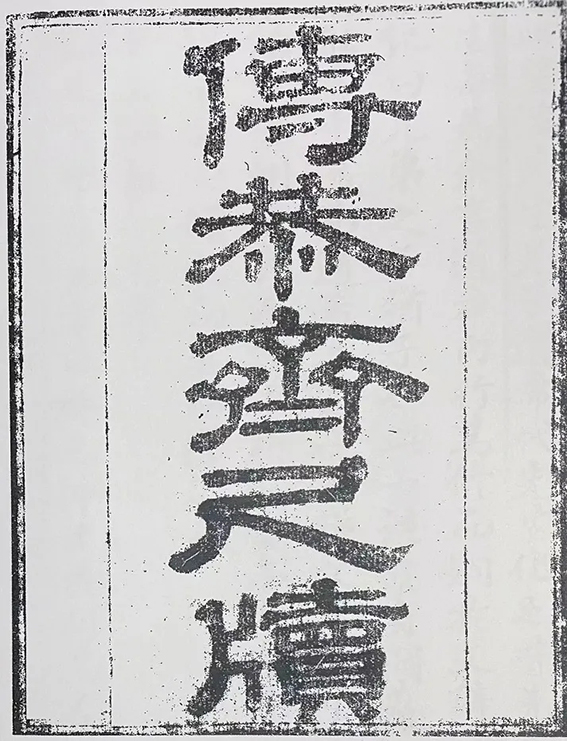 傳恭齊尺牘